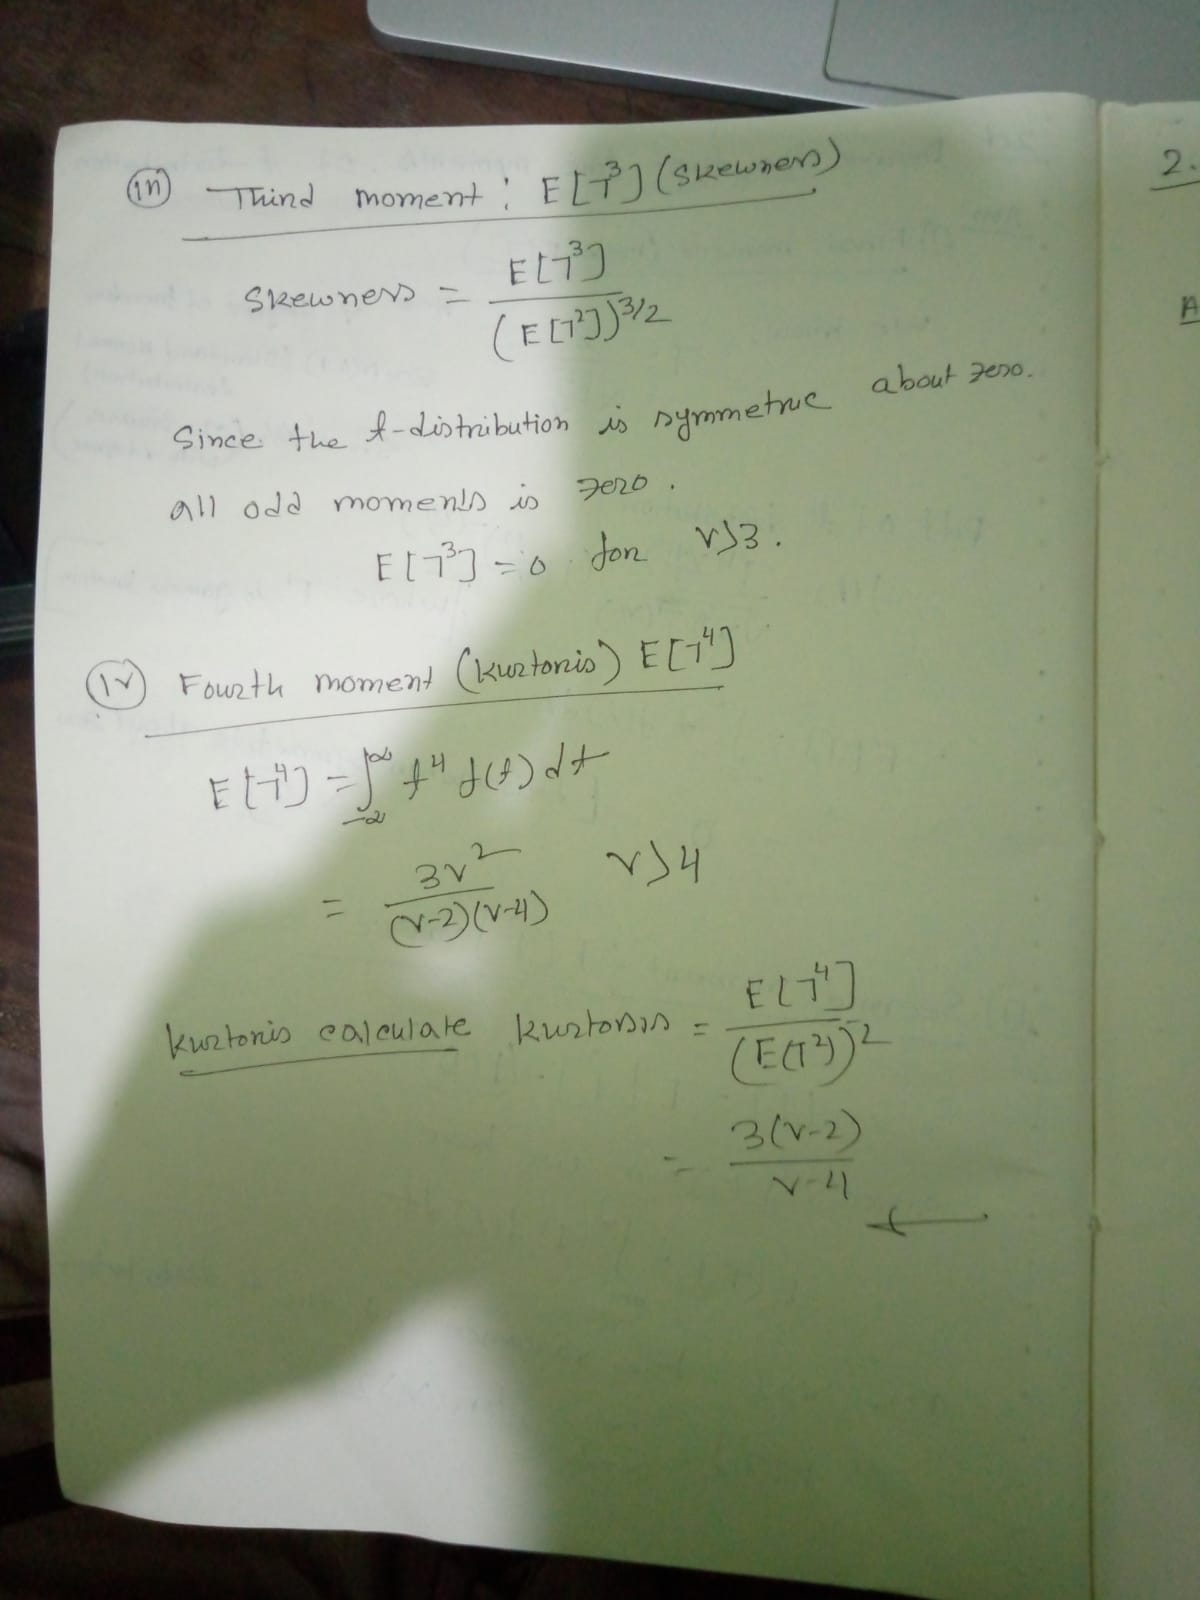 (iii) Third moment : E[T³] (Skewness)
Skewness = E[T³] / (E[T²])^3/2
Since the t-distribution is symmetric about zero.
all odd moments is zero.
E[T³] = 0 for ν>3.
(iv) Fourth moment (kurtosis) E[T⁴]
E[T⁴] = ∫_-∞^∞ t⁴ f(t) dt
= 3ν² / (ν-2)(ν-4) ν>4
kurtosis calculate kurtosis = E[T⁴] / (E(T²))²
= 3(ν-2) / ν-4
2.
A